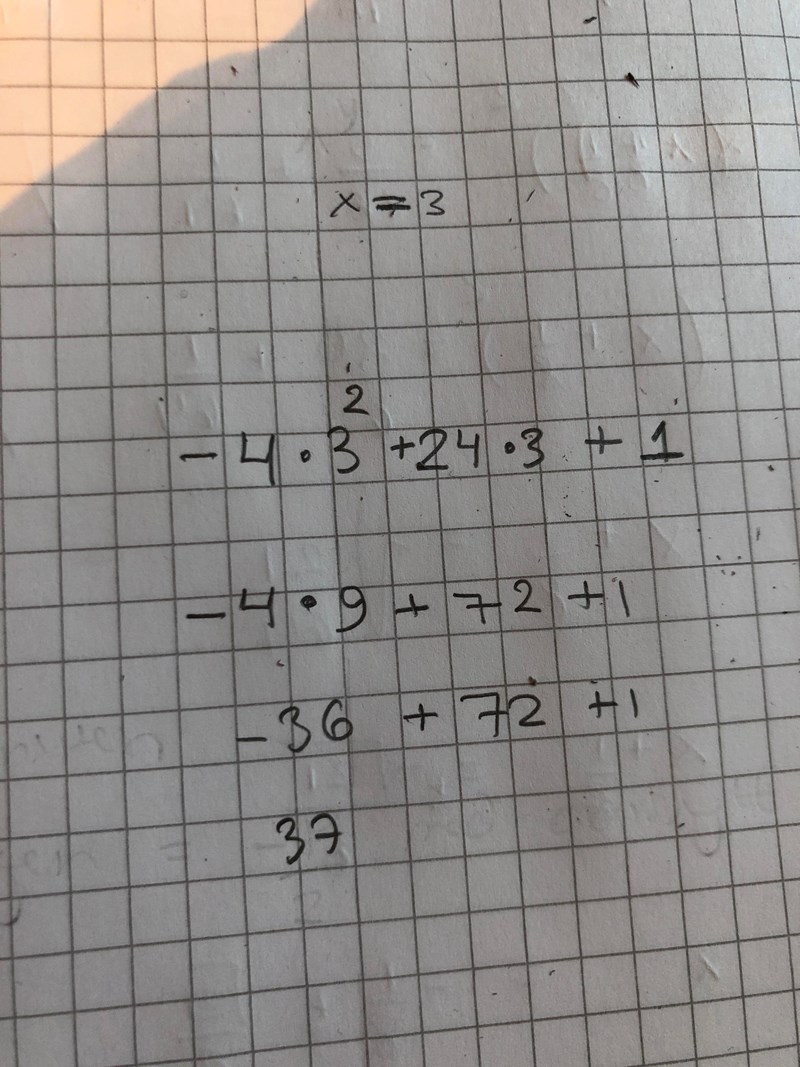 x = 3
-4·3² + 24·3 + 1
-4·9 + 72 + 1
-36 + 72 + 1
37